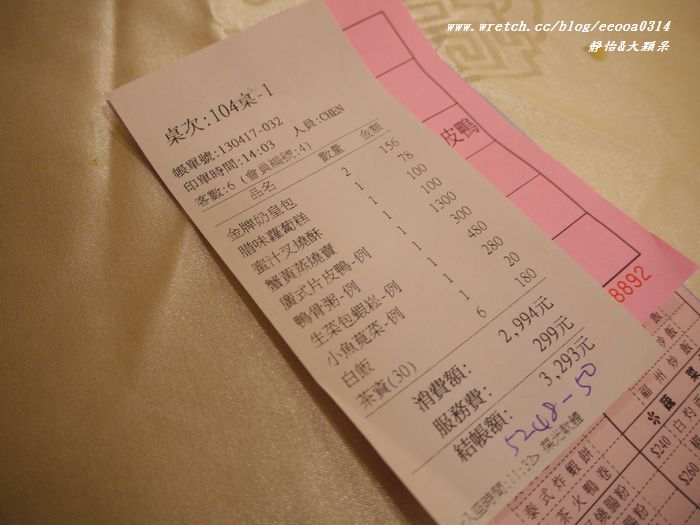 www.wretch.cc/blog/eeooa0314
靜怡&大顆呆
桌次:104桌-1
帳單號:130417-032
印單時間:14:03 人員:CHEN
客數:6 (會員編號:4)
品名 數量 金額
金牌奶皇包 2 156
腊味蘿蔔糕 1 78
蜜汁叉燒酥 1 100
蟹黃蒸燒賣 1 100
廣式片皮鴨-例 1 1300
鴨骨粥-例 1 300
生菜包蝦崧-例 1 480
小魚莧菜-例 1 280
白飯 1 20
茶資(30) 6 180
消費額: 2,994元
服務費: 299元
結帳額: 3,293元
5248-50
入座時間:11:32
皮鴨
8892
福州炒飯
泰式炸蝦餅 $240
茶火鴨卷 $260
燒腸粉